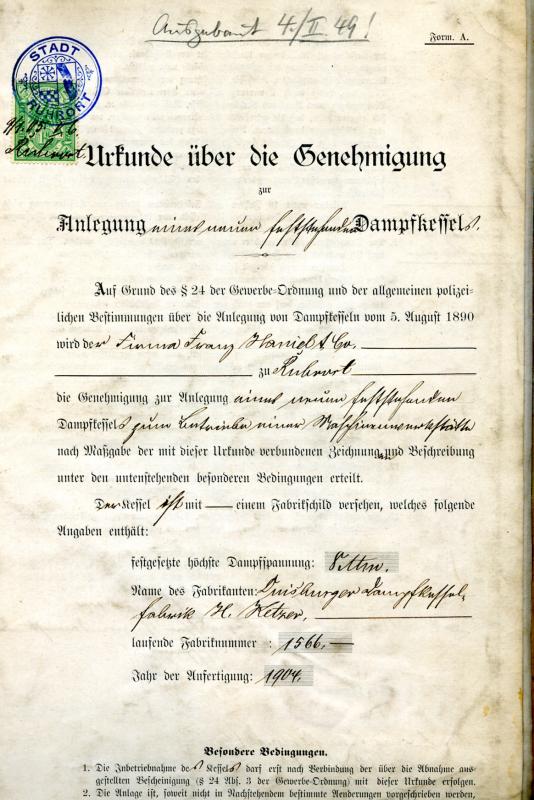 Ausgebaut 4./II. 49!
Form. A.
STADT
RUHRORT
9/1. 05.
Ruhrort
Urkunde über die Genehmigung
zur
Anlegung eines neuen feststehenden Dampfkessels.
Auf Grund des § 24 der Gewerbe-Ordnung und der allgemeinen polizei-
lichen Bestimmungen über die Anlegung von Dampfkesseln vom 5. August 1890
wird der Firma Franz Haniel & Co.
zu Ruhrort
die Genehmigung zur Anlegung eines neuen feststehenden
Dampfkessels zum Betriebe einer Maschinenwerkstätte
nach Maßgabe der mit dieser Urkunde verbundenen Zeichnung und Beschreibung
unter den untenstehenden besonderen Bedingungen erteilt.
Der Kessel ist mit — einem Fabrikschild versehen, welches folgende
Angaben enthält:
festgesetzte höchste Dampfspannung: 8 Atm.
Name des Fabrikanten: Duisburger Dampfkessel-
fabrik H. Ketzer,
laufende Fabriknummer : 1566.—
Jahr der Anfertigung: 1904.
Besondere Bedingungen.
1. Die Inbetriebnahme des Kessels darf erst nach Verbindung der über die Abnahme aus-
gestellten Bescheinigung (§ 24 Abs. 3 der Gewerbe-Ordnung) mit dieser Urkunde erfolgen.
2. Die Anlage ist, soweit nicht in Nachstehendem bestimmte Aenderungen vorgeschrieben werden,